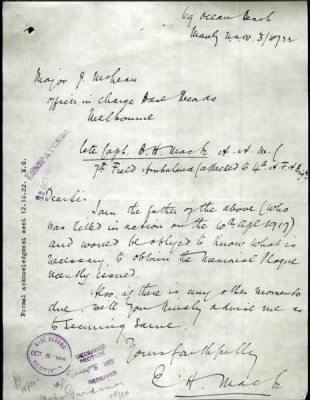 Ocean Beach
Manly N.S.W. 3/10/22
Major J. McLean
Officer in Charge Base Records
Melbourne
late Capt. B. H. Mack A. A. M. C
7th Field Ambulance (attached to 4th A.F.A.
Dear Sir
I am the father of the above (who
was killed in action on the
and would be obliged to know what is
necessary to obtain the Memorial Plaque
recently issued.
Also, if there is any other mementos
due. will you kindly advise me as
to securing same.
Yours faithfully
E. H. Mack
Formal acknowledgment sent 12.10.22.
BASE RECORDS
OCT 6 1922
DECEASED
SECTION
RECEIVED